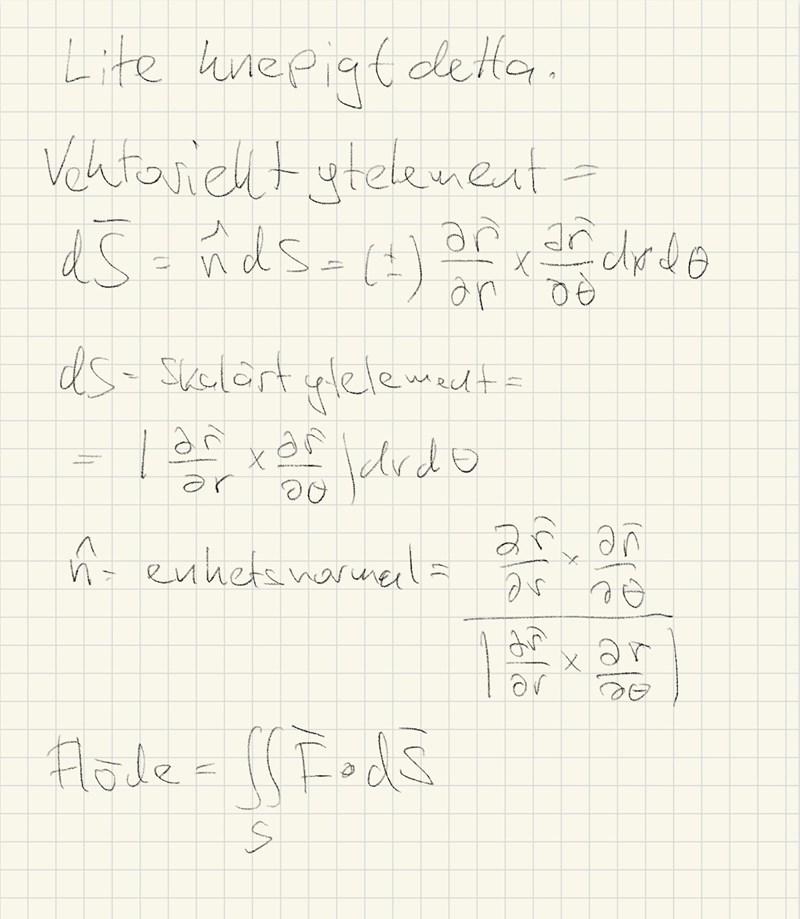 Lite knepigt detta.
Vektoriellt ytelement =
dS̄ = n̂ dS = (±) ∂r̄/∂r × ∂r̄/∂θ dr dθ
dS = skalärt ytelement =
= |∂r̄/∂r × ∂r̄/∂θ| dr dθ
n̂ = enhetsnormal = (∂r̄/∂r × ∂r̄/∂θ) / |∂r̄/∂r × ∂r/∂θ|
Flöde = ∬_S F̄ • dS̄